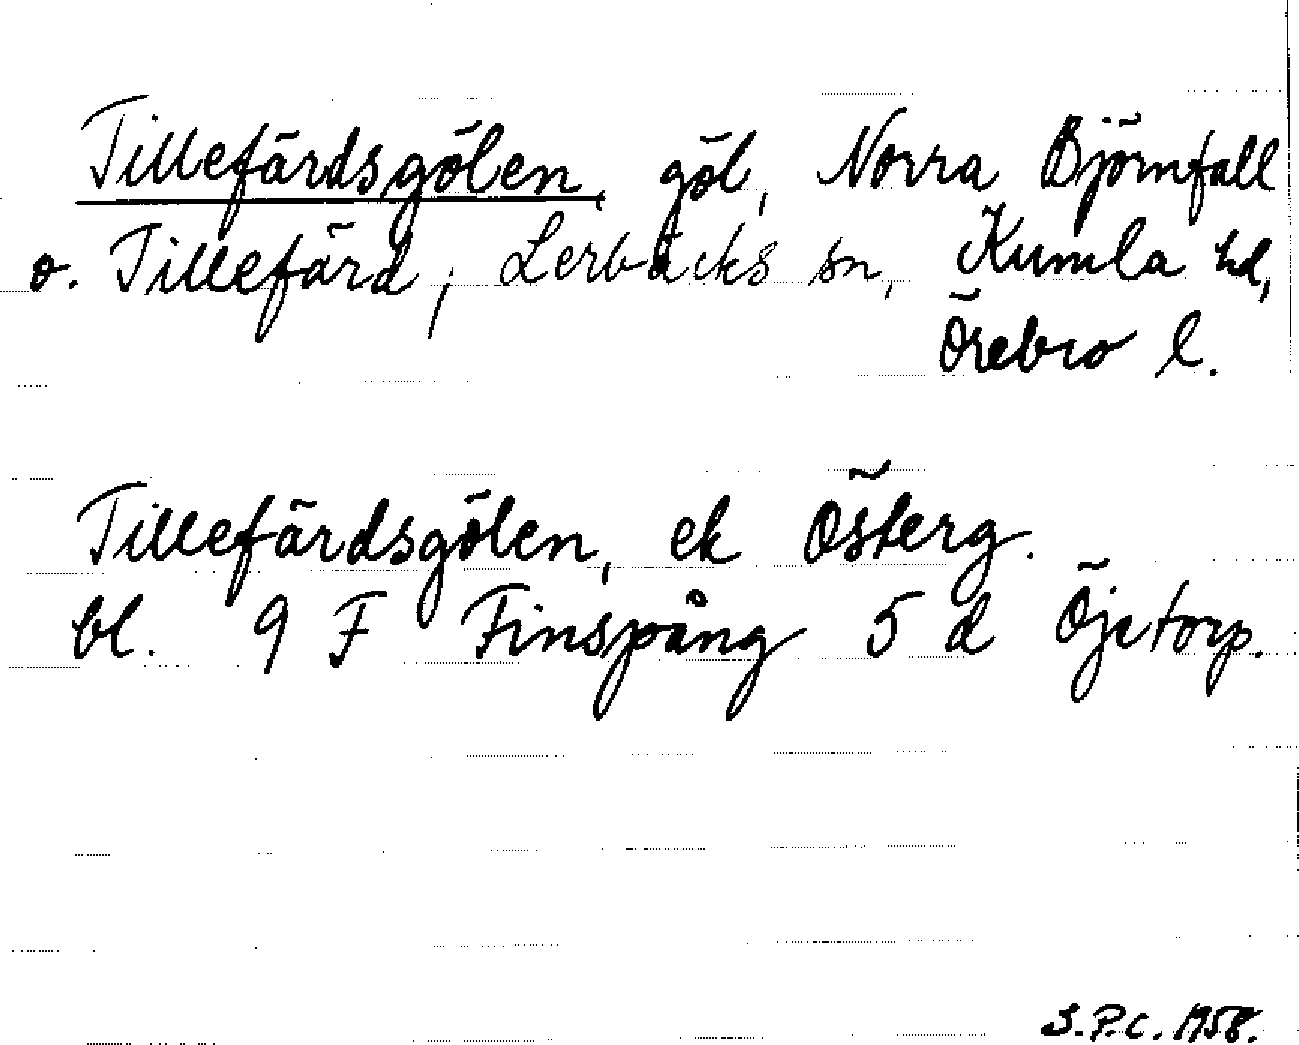 Tillefärdsgölen, göl, Norra Björnfall
o. Tillefärd, Lerbäcks sn, Kumla hd,
Örebro l.
Tillefärdsgölen, ek Österg.
bl. 9 F Finspång 5 d Öjetorp.
S.P.C. 1958.